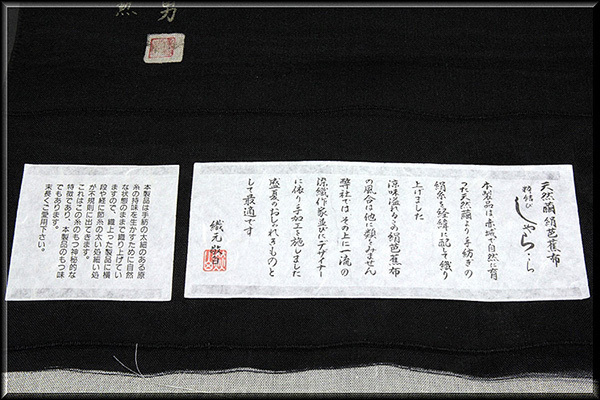 男
天然繭絹芭蕉布
しゃら・ら
本製品は赤城の自然に育
った天然繭より手紡ぎの
絹糸を経緯に配して織り
上げました
涼味溢れるこの絹芭蕉布
の風合は他に類をみません
弊社ではその上に一流の
染織作家並びにデザイナー
に依り手加工を施しました
盛夏のおしゃれきものと
して最適です
織元敬白
本製品は手紡の太細のある原
糸の持味を生かすために自然
な状態のままで織り上げてい
ますので、織上った製品に横
段や経に節糸の太い処細い処
が不規則に出てきます。
これはこの糸のもつ神秘的な
特徴であり、本製品のもつ味
でもあります。
末長くご愛用下さい。